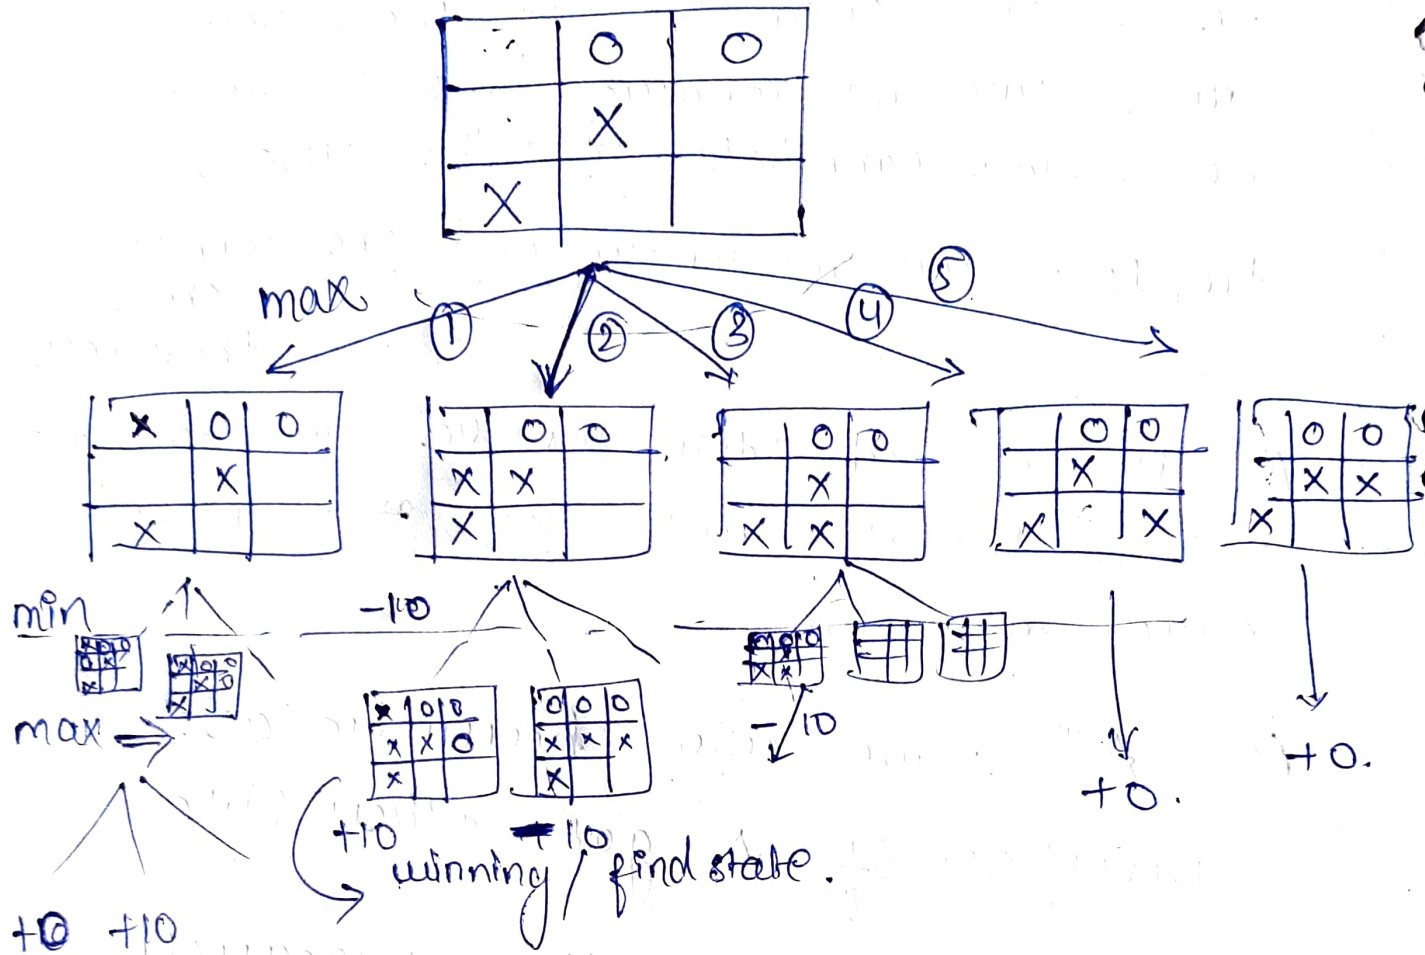 O O
X
X
max
① ② ③ ④ ⑤
X O O
X
X
O O
X X
X
O O
X
X X
O O
X
X X
O O
X X
X
min
-10
X O O
O X
X
X O O
X O
X
max
X O O
X X O
X
O O O
X X X
X
- 10
+0.
+0.
+10
+10
winning / find state.
+0 +10